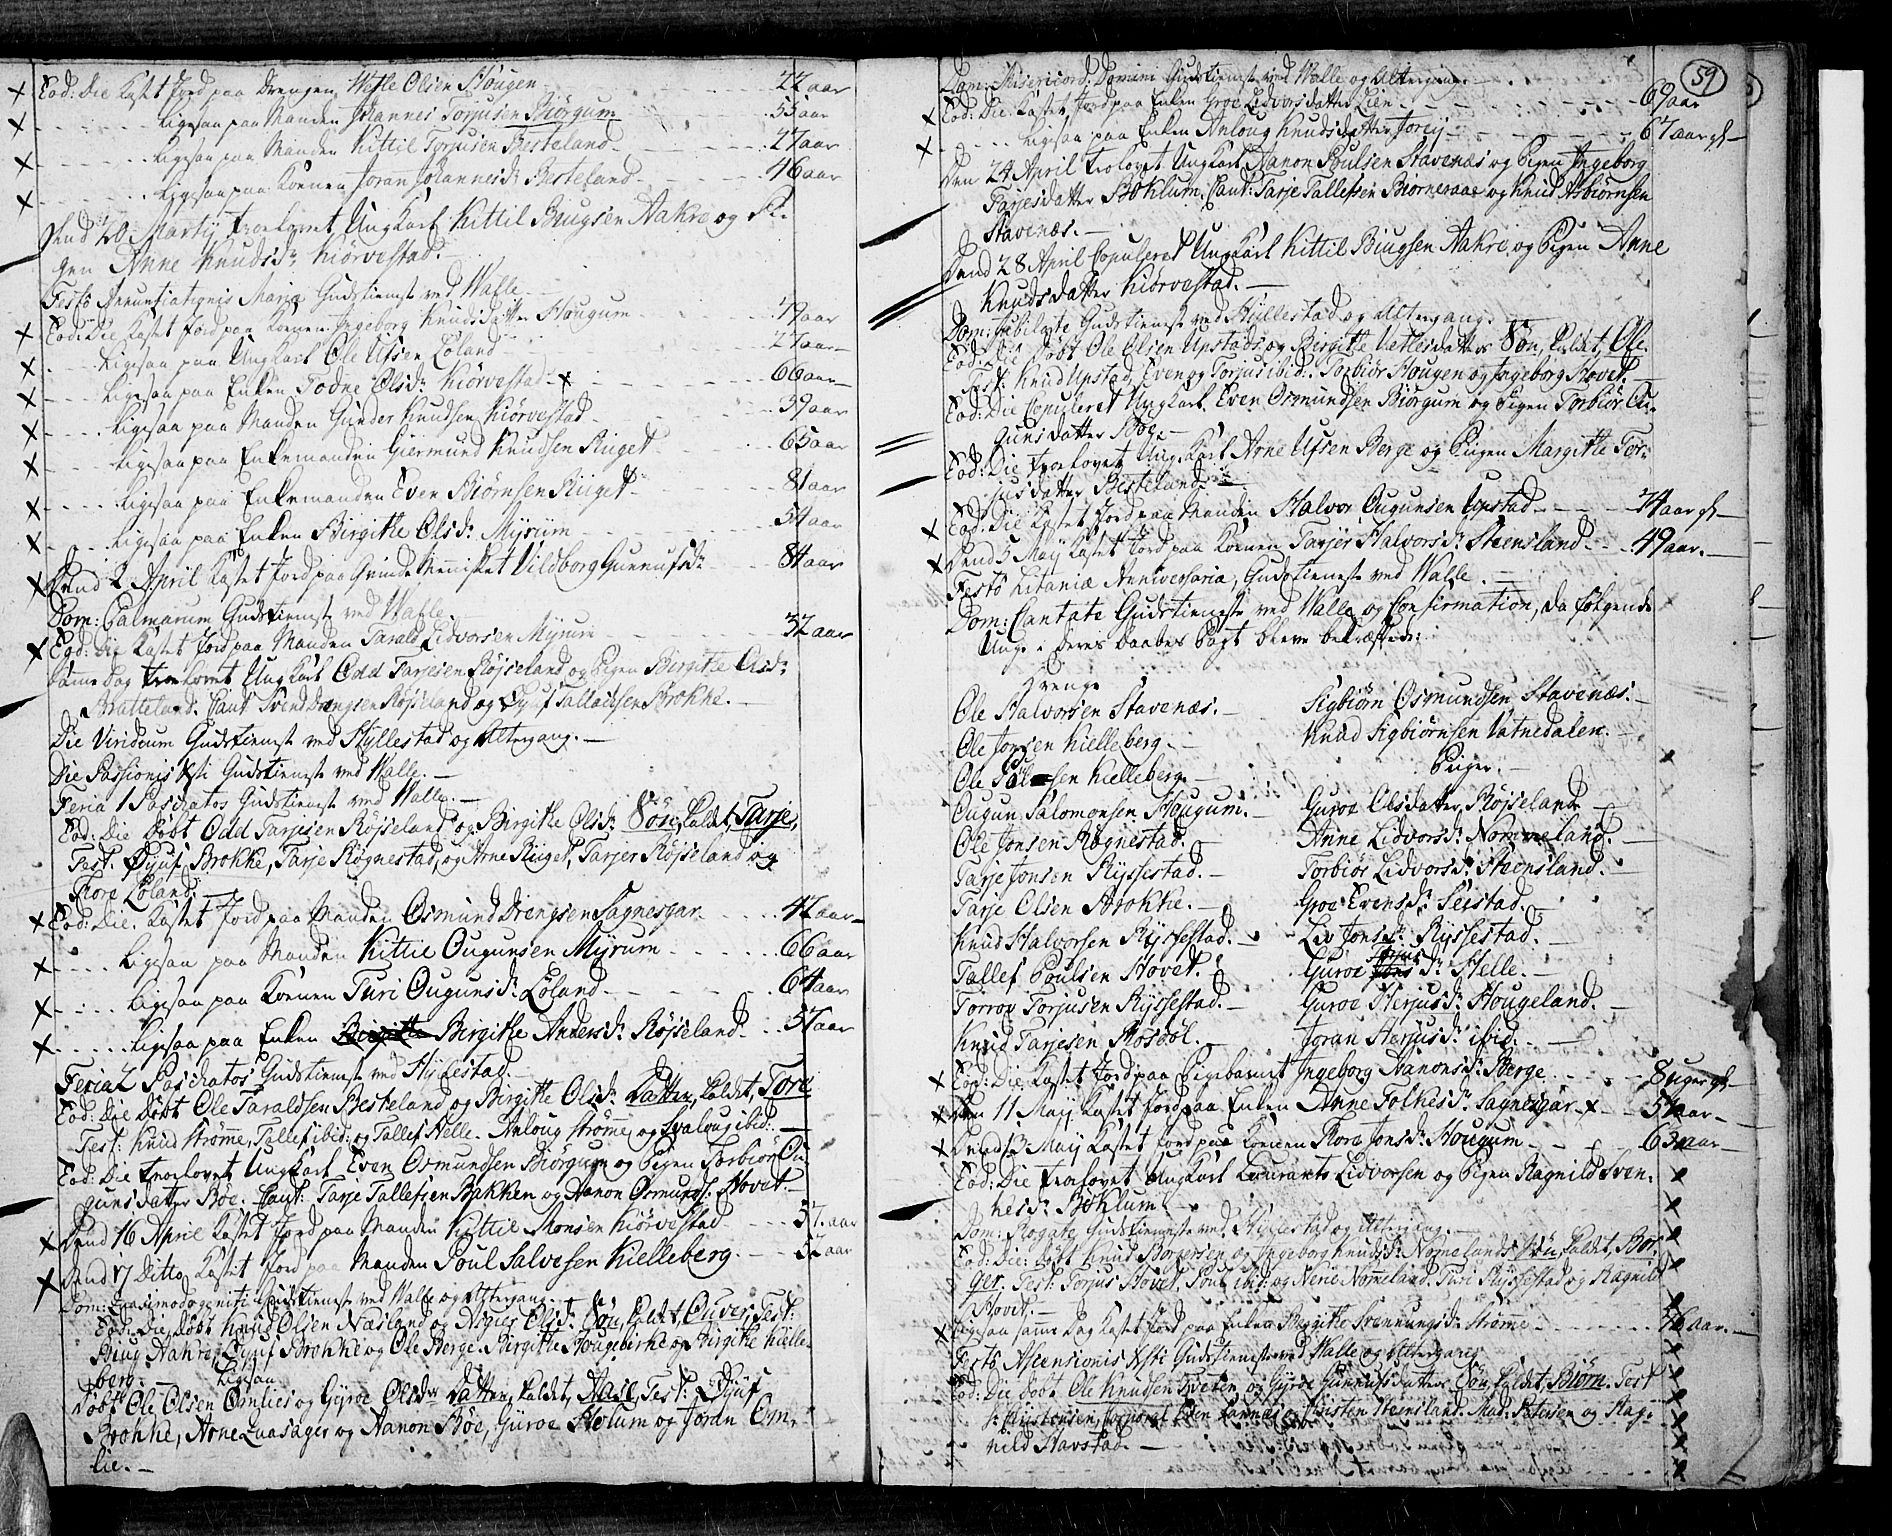 Eod: Die Kastet Jord paa Drengen Wetle Olsen Hougen 22 aar
Ligesaa paa Manden Johannes Torjusen Biörgum 55 aar
Ligesaa paa Manden Kittil Torjusen Besteland 27 aar
Ligesaa paa Konen Joran Johannesd: Besteland 46 aar
Dend 20 Martij troelovet Ungkarl Kittil Biugsen Aakre og Pi-
gen Anne Knudsd: Kiörvestad.
Festo Annunciationis Mariæ Gudstieneste ved Walle.
Eod: Die Kastet Jord paa Konen Ingeborg Knudsdatter Hougum 79 aar
Ligesaa paa Ungkarl Ole Ufsen Löland 27 aar
Ligesaa paa Enken Todne Olsd: Kiörvestad 66 aar
Ligesaa paa Manden Gunder Knudsen Kiörvestad 39 aar
Ligesaa paa Enkemanden Giermund Knudsen Riiget 65 aar
Ligesaa paa Enkemanden Even Biörnsen Riiget 81 aar
Ligesaa paa Enken Birgitte Olsd: Myrum 54 aar
Dend 2 April Kastet Jord paa Qvinde Mennisket Vildborg Gunnufsd: 84 aar
Dom: Palmarum Gudstieneste ved Walle.
Eod: Die Kastet Jord paa Manden Tarald Lidvorsen Myrum 32 aar
Samme Dag troelovet Ungkarl Odd Tarjesen Röjseland og Pigen Birgitte Olsd:
Bratteland. Caut: Svend Drengsen Röjseland og Dyuf Tallacksen Brokke.
Die Viridium Gudstieneste ved Hyllestad og Altergang.
Die Passionis Xsti Gudstieneste ved Walle.
Feria 1 Paschatos Gudstieneste ved Walle.
Eod: Die Döbt Odd Tarjesen Röjseland og Birgitte Olsd: Sön, kaldet, Tarje,
Test: Dyuf Brokke, Tarje Rögnestad, og Arne Riiget, Tarjer Röjseland og
Thore Löland.
Eod: Die. Kastet Jord paa Manden Osmund Drengsen Sagnesgar 42 aar
Ligesaa paa Manden Kittil Ougunsen Myrum 66 aar
Ligesaa paa Konen Turi Ougunsd: Löland 64 aar
Ligesaa paa Enken Birgitte Andersd: Röjseland 57 aar
Feria 2 Paschatos Gudstieneste ved Hyllestad.
Eod: Die Döbt Ole Taraldsen Besteland og Birgitte Olsd: Datter, kaldet, Tore
Test: Knud Strömme, Tallef ibid: og Tallef Helle. Anloug Strömme og Svaloug ibid:
Eod: Die troelovet Ungkarl Even Osmundsen Biörgum og Pigen Torbiör Ou-
gunsdatter Böe. Caut: Tarje Tallefsen Bakken og Aanon Osmunds: Hovet
Dend 16 April Kastet Jord paa Manden Kittil Monsen Kiörvestad 37 aar
Dend 17 Ditto Kastet Jord paa Manden Poul Salvesen Kielleberg 52 aar
Dom: Quasimodogeniti Gudstieneste ved Walle og Altergang.
Eod: Die Döbt Knud Olsen Næsland og Asgier Olsd: Sön, kaldet, Ouver, Test:
Biug Aakre, Dyuf Brokke og Ole Berge. Birgitte Hougebirke og Birgitte Kielle-
berg. Ligesaa
Döbt Ole Olsen Omlies og Gyroe Olsdr Datter, kaldet, Aasl, Test: Dyuf
Brokke, Arne Quasager og Aanon Böe, Gyroe Holum og Joran Om-
lie.
59
Dom: Misericord: Domini Gudstieneste ved Walle og Altergang.
Eod: Die. Kastet Jord paa Enken Groe Lidvorsdatter Lien 69 aar
Ligesaa paa Enken Anloug Knudsdatter 67 aar gl
Den 24 April troelovet Ungkarl Aanon Poulsen Stavenæs og Pigen Ingeborg
Tarjesdatter Boklum. Caut: Tarje Tallefsen Biörnaraae og Knud Asbiörnsen
Stavenæs.
Dend 28 April Copuleret Ungkarl Kittil Biugsen Aakre og Pigen Anne
Knudsdatter Kiörvestad.
Dom: Jubilate Gudstieneste ved Hyllestad og Altergang.
Eod: Die Döbt Ole Olsen Upstads og Birgitte Vetlesdatters Sön, kaldet, Ole.
Test: Knud Upstad, Even og Torjus ibid: Torbiör Hougen og Ingeborg Hovet.
Eod: Die Copuleret Ungkarl Even Osmundsen Biörgum og Pigen Torbiör Ou-
gunsdatter Böe.
Eod: Die troelovet Ungkarl Arne Ufsen Berge og Pigen Margitte Tor-
jusdatter Besteland.
Eod: Die Kastet Jord paa Manden Halvor Ougunsen Upstad 74 aar gl
Dend 5 Maij Kastet Jord paa Konen Tarjer Halvorsd: Steensland 49 aar.
Festo Litaniæ Anniversaria, Gudstieneste ved Walle.
Dom: Cantate Gudstieneste ved Walle og Confirmation, da fölgende
Unge i deres Daabes Pagt bleve bekræftede:
Drenge
Ole Halvorsen Stavenæs. Sigbiörn Osmundsen Stavenæs.
Ole Jonsen Kielleberg. Knud Sigbiörnsen Vatnedalen.
Ole Kielleberg. Piiger.
Ougun Salomonsen Hougum. Guroe Olsdatter Röjseland
Ole Jonsen Rögnestad. Anne Lidvorsd: Nommeland.
Tarje Jonsen Ryssestad. Torbiör Lidvorsd: Steensland.
Tarje Olsen Brokke. Groe Evensd:
Knud Halvorsen Ryssestad. Liv Jonsd: Ryssestad.
Tallef Poulsen Hovet. Guroe Torjus d: Helle.
Torrov Torjusen Ryssestad. Guroe Herjusd: Hougeland.
Knud Tarjesen Rosdöl. Joran Herjusd: ibid.
Eod: Die Kastet Jord paa Pigebarnet Ingeborg Aanonsd: Berge 8 uger gl
Den 11 Maij Kastet Jord paa Enken Anne Folkesd: Sagnesgar 54 aar
Dend 13 Maij Kastet Jord paa Konen Thore Jonsd: Hougum 63 aar
Eod: Die troelovet Ungkarl Laurants Lidvorsen og Pigen Ragnild Sven-
kesd: Boklum.
Dom: Rogate Gudstieneste ved Hyllestad og Altergang.
Eod: Die: Döbt Knud Borgersen og Ingeborg Knudsd: Nomelands Sön, kaldet, Bor-
ger. Test: Torjus Hovet, Poul ibid: og Nerie Nommeland. Turi Ryssestad og Ragnild
Hovet.
Ligesaa samme Dag Kastet Jord paa Enken Birgitte Svenningsd: Strömme 76 aar.
Festo Ascensionis Xsti Gudstieneste ved Walle og Altergang
Eod: Die Döbt Ole Knudsen Tveten og Gyroe Gunnufsdatters Sön, kaldet, Biörn. Test
Corporal og Kirsten Steensland. Mad: Petersen og Rag-
nild Harstad.